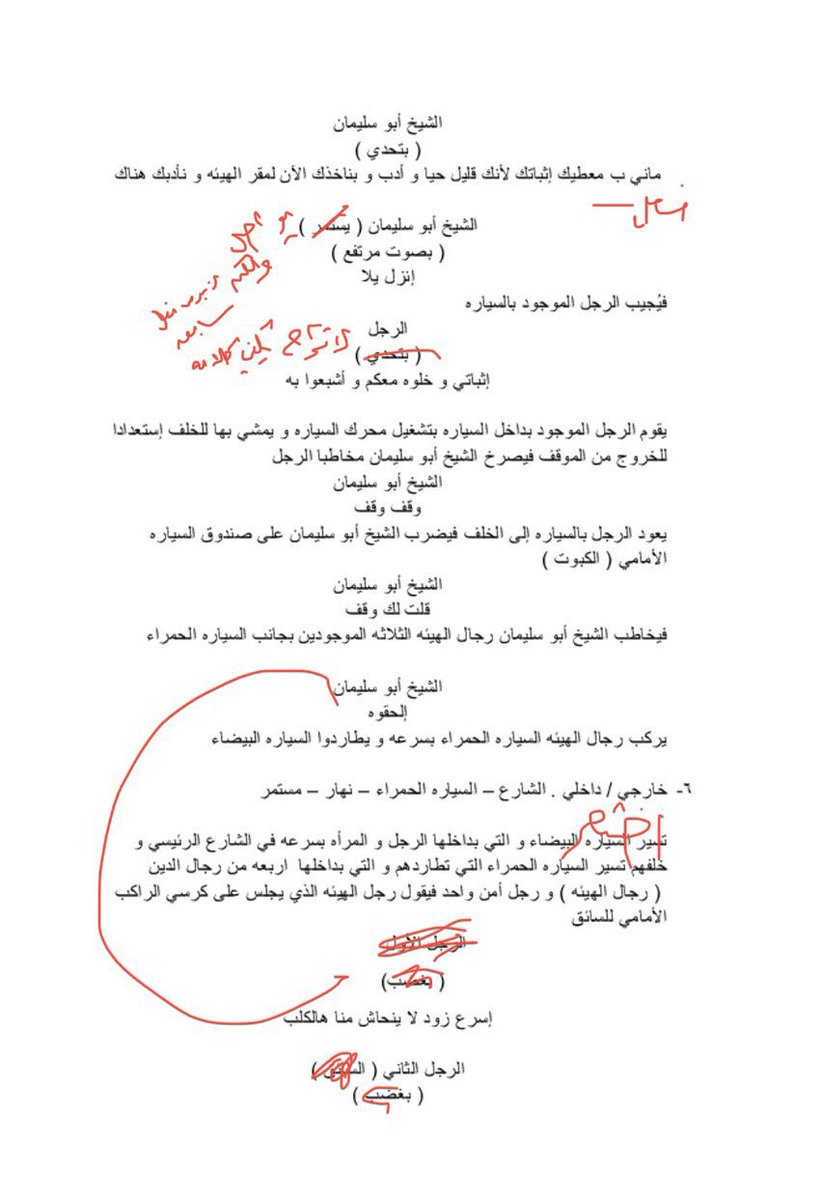 الشيخ أبو سليمان
( بتحدي )
ماني ب معطيك إثباتك لأنك قليل حيا و أدب و بناخذك الآن لمقر الهيئه و نأدبك هناك
الشيخ أبو سليمان ( يستمر )
( بصوت مرتفع )
إنزل يلا
فيُجيب الرجل الموجود بالسياره
الرجل
( بتحدي )
إثباتي و خلوه معكم و أشبعوا به
يقوم الرجل الموجود بداخل السياره بتشغيل محرك السياره و يمشي بها للخلف إستعدادا
للخروج من الموقف فيصرخ الشيخ أبو سليمان مخاطبا الرجل
الشيخ أبو سليمان
وقف وقف
يعود الرجل بالسياره إلى الخلف فيضرب الشيخ أبو سليمان على صندوق السياره
الأمامي ( الكبوت )
الشيخ أبو سليمان
قلت لك وقف
فيخاطب الشيخ أبو سليمان رجال الهيئه الثلاثه الموجودين بجانب السياره الحمراء
الشيخ أبو سليمان
إلحقوه
يركب رجال الهيئه السياره الحمراء بسرعه و يطاردوا السياره البيضاء
٦- خارجي / داخلي . الشارع – السياره الحمراء – نهار – مستمر
تسير السياره البيضاء و التي بداخلها الرجل و المرأه بسرعه في الشارع الرئيسي و
خلفهم تسير السياره الحمراء التي تطاردهم و التي بداخلها اربعه من رجال الدين
( رجال الهيئه ) و رجل أمن واحد فيقول رجل الهيئه الذي يجلس على كرسي الراكب
الأمامي للسائق
الرجل الأول
( بغضب)
إسرع زود لا ينحاش منا هالكلب
الرجل الثاني ( )
( بغضب )